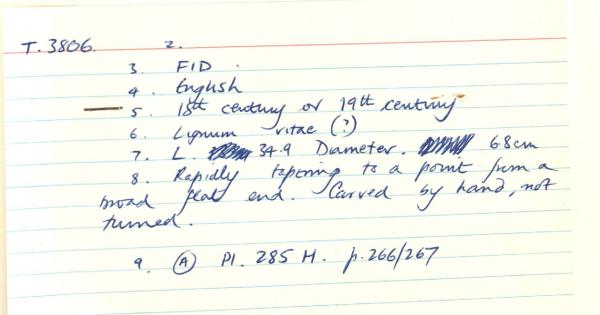 T. 3806. 2.
3. FID.
4. English
5. 18th century or 19th century
6. Lignum vitae (?)
7. L. 34.9 Diameter. 6.8cm
8. Rapidly tapering to a point from a
broad flat end. Carved by hand, not
turned.
9. (A) Pl. 285 H. p.266/267